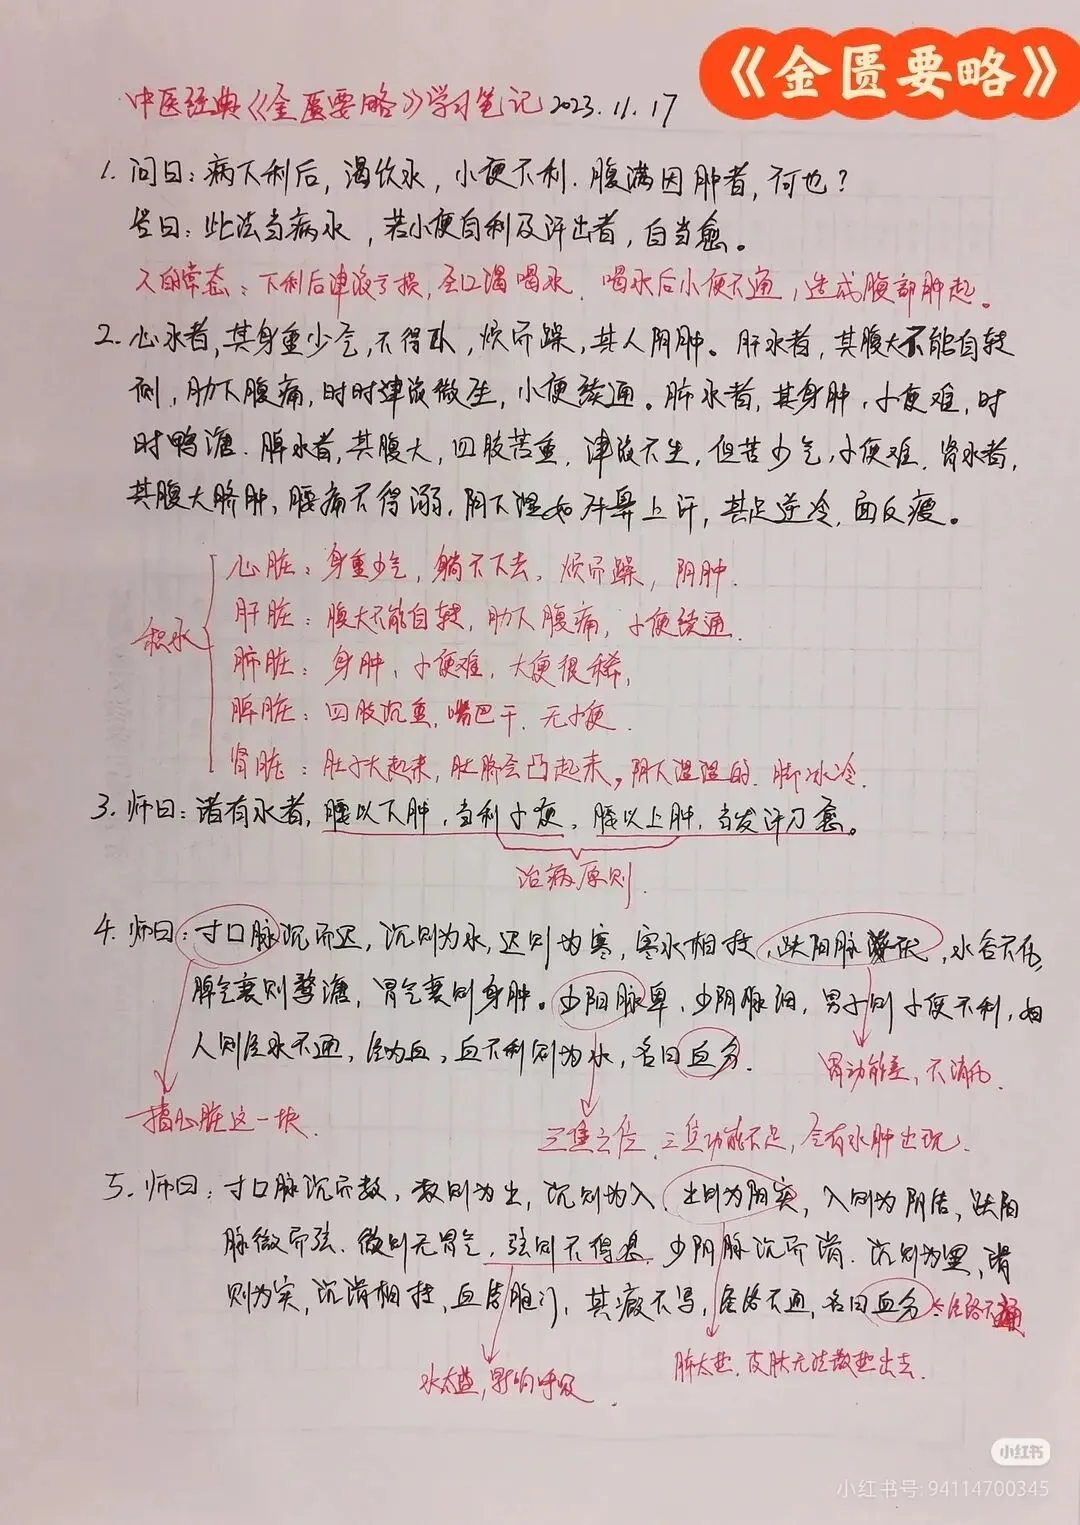 《金匮要略》
中医经典《金匮要略》学习笔记 2023.11.17
1. 问曰：病下利后，渴饮水，小便不利，腹满因肿者，何也？
答曰：此法当病水，若小便自利及汗出者，自当愈。
人的常态：下利后津液亏损，会口渴喝水，喝水后小便不通，造成腹部肿起。
2. 心水者，其身重少气，不得卧，烦而躁，其人阴肿。肝水者，其腹大不能自转
侧，肋下腹痛，时时津液微生，小便续通。肺水者，其身肿，小便难，时
时鸭溏。脾水者，其腹大，四肢苦重，津液不生，但苦少气，小便难。肾水者，
其腹大脐肿，腰痛不得溺，阴下湿如牛鼻上汗，其足逆冷，面反瘦。
积水
心脏：身重少气，躺不下去，烦而躁，阴肿.
肝脏：腹大不能自转，肋下腹痛，小便续通.
肺脏：身肿，小便难，大便很稀，
脾脏：四肢沉重，嘴巴干，无小便.
肾脏：肚子大起来，肚脐会凸起来，阴下湿湿的，脚冰冷.
3. 师曰：诸有水者，腰以下肿，当利小便，腰以上肿，当发汗乃愈。
治病原则.
4. 师曰：寸口脉沉而迟，沉则为水，迟则为寒，寒水相抟，趺阳脉伏，水谷不化，
脾气衰则鹜溏，胃气衰则身肿。少阳脉卑，少阴脉细，男子则小便不利，妇
人则经水不通，经为血，血不利则为水，名曰血分.
胃功能差，不消化.
指心脏这一块.
三焦之位，三焦功能不足，会有水肿出现.
5. 师曰：寸口脉沉而数，数则为出，沉则为入，出则为阳实，入则为阴结，趺阳
脉微而弦，微则无胃气，弦则不得息，少阴脉沉而滑，沉则为里，滑
则为实，沉滑相抟，血结胞门，其瘕不泻，经络不通，名曰血分 经络不通
水太盛，影响呼吸.
肺太热，皮肤无法散热出去.
小红书
小红书号: 94114700345